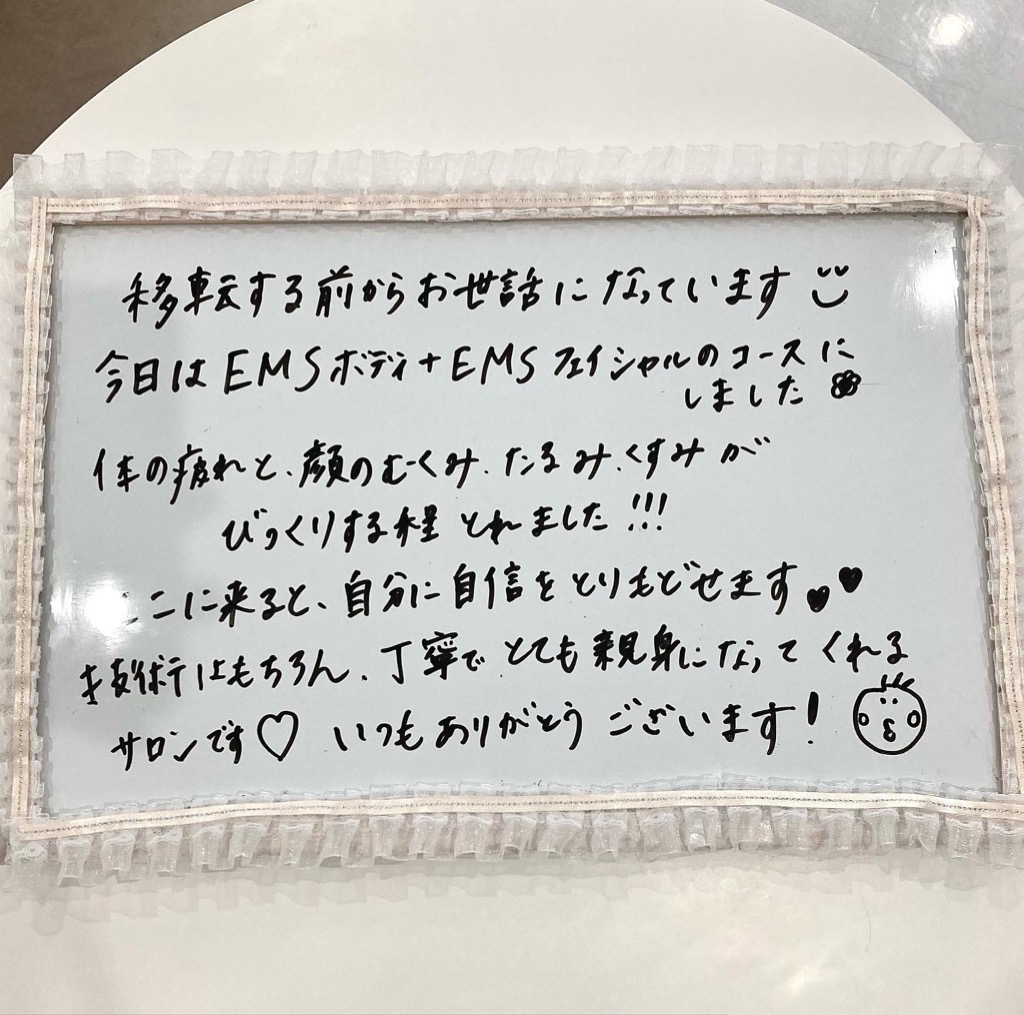 移転する前からお世話になっています
今日はEMSボディ+EMSフェイシャルのコースに
しました
体の疲れと、顔のむくみ、たるみ、くすみが
びっくりする程とれました!!!
ここに来ると、自分に自信をとりもどせます
技術はもちろん、丁寧でとても親身になってくれる
サロンです♡ いつもありがとうございます!